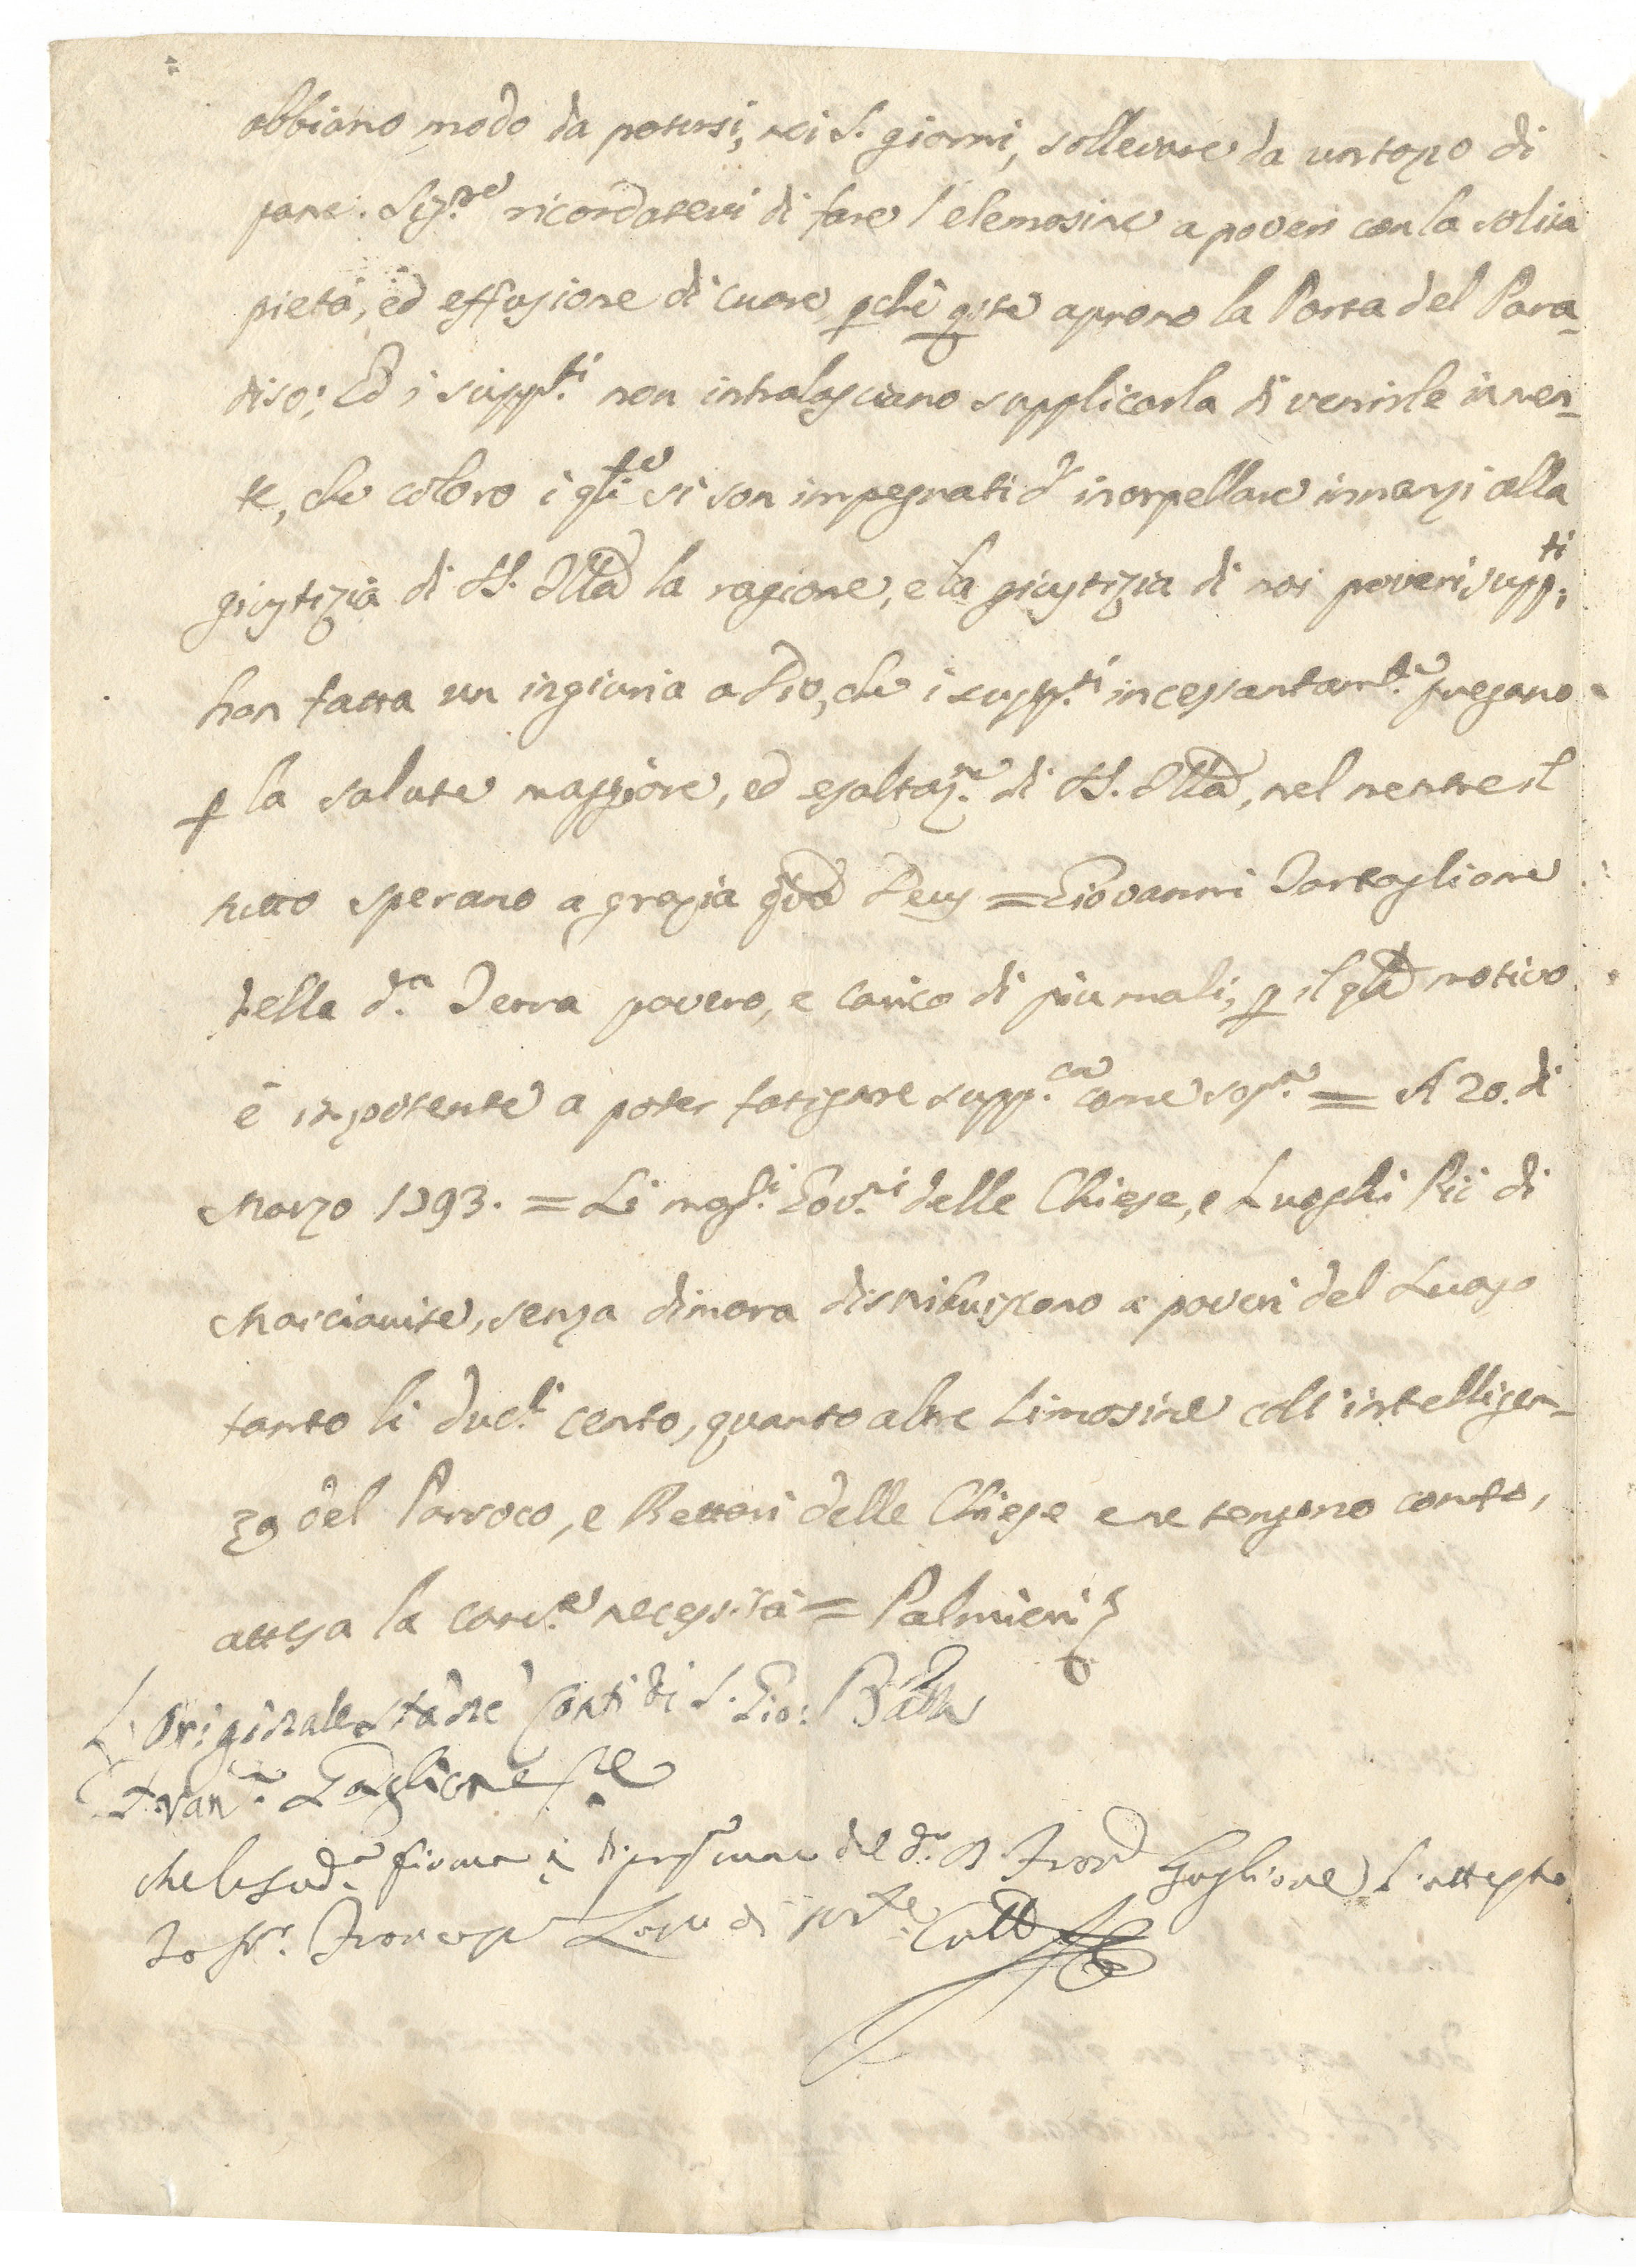 abbiano modo da potersi, nei S. giorni, sollevare da un tozzo di
pane. Sig.re ricordatevi di fare l'elemosine a poveri con la solita
pietà, ed effusione di cuore pchè qste aprono la Porta del Para-
diso; Ed i supp.ti non intralasciano supplicarla di venirle in men-
te, che coloro i qli si son impegnati d'inorpellare innanzi alla
giustizia di V.S. Illma la ragione, e la giustizia di noi poveri supp.ti
han fatta un ingiuria a Dio, che i supp.ti incessantam.te pregano
p la salute maggiore, ed esaltaz.ne di V.S. Illma, nel mentre il
tutto sperano a grazia qua Deus = Giovanni Tartaglione
della d.a Terra povero, e carico di piu mali, p il qle motivo
è impotente a poter fatigare supp.ca come sop.a = A 20. di
Marzo 1793. = Li mag.ci Gov.ri delle Chiese, e Luoghi Pii di
Marcianise, senza dimora distribuiscono a poveri del Luogo
tanto li duc.ti cento, quanto altre Limosine coll'intelligen-
za del Parroco, e Rettori delle Chiese e ne tengano conto,
attesa la corr.e necessità = Palmieri
L'Originale sta ne Conti di S. Gio: Batta
Fran.co Gaglione
che la sud.a firma è di prop.a mano del d.o D. Fran.co Gaglione L'attesto
Io Nr.